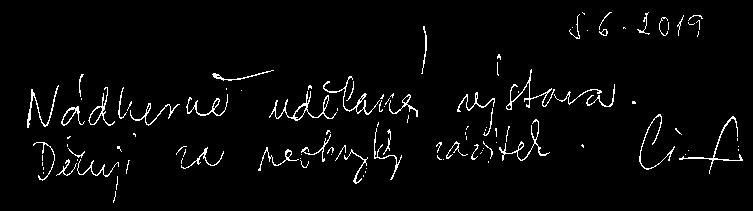 5.6.2019
Nádherně udělaná výstava.
Děkuji za neobvyklý zážitek.